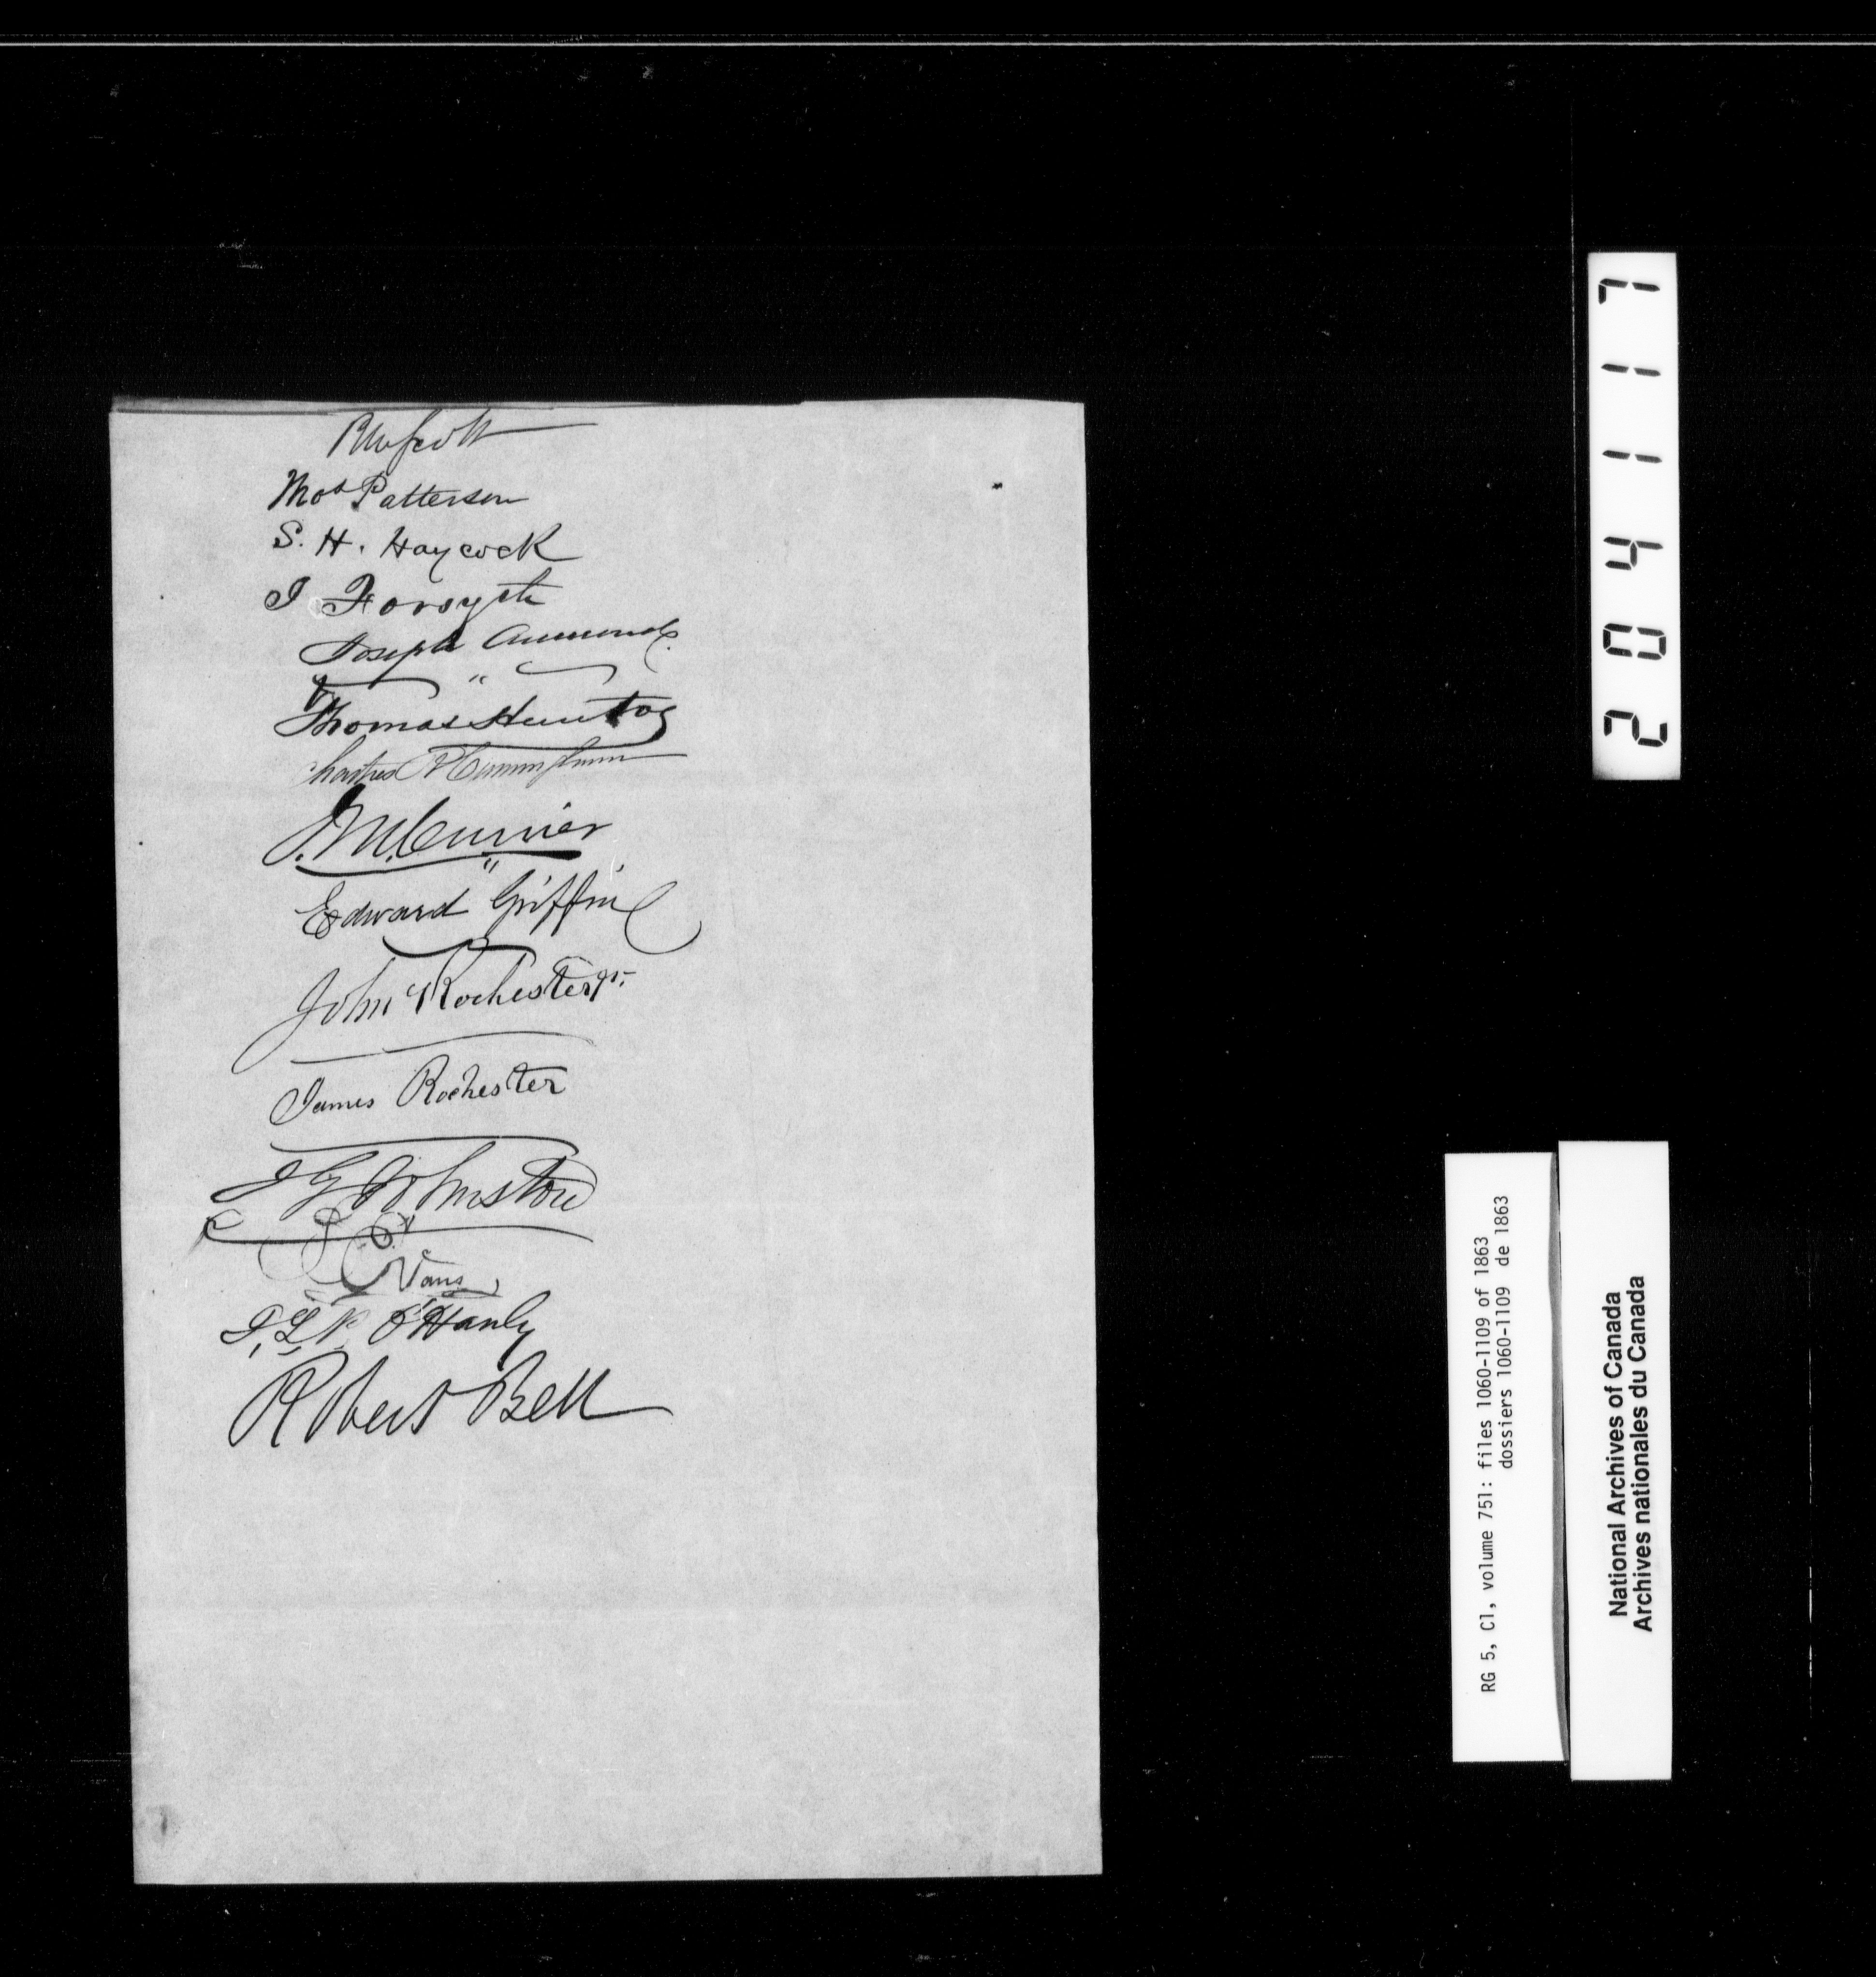 R W Scott
Thos Patterson
S. H. Haycock
J Forsyth
Joseph Aumond
Thomas Hunton
Cunningham
J. M. Currier
Edward Griffin
John Rochester jr.
James Rochester
J G Johnston
Vans
J. L. P. O'Hanly
Robert Bell
204117
RG 5, C1, volume 751: files 1060-1109 of 1863
dossiers 1060-1109 de 1863
National Archives of Canada
Archives nationales du Canada